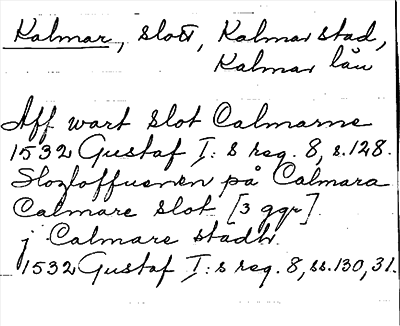 Kalmar, slott, Kalmar stad,
Kalmar län
Aff wart slot Calmarne
1532 Gustaf I:s reg. 8, s. 128.
på Calmara
Calmare slot [3 ggr]
j Calmare stadh.
1532 Gustaf I:s reg. 8, ss. 130, 31.